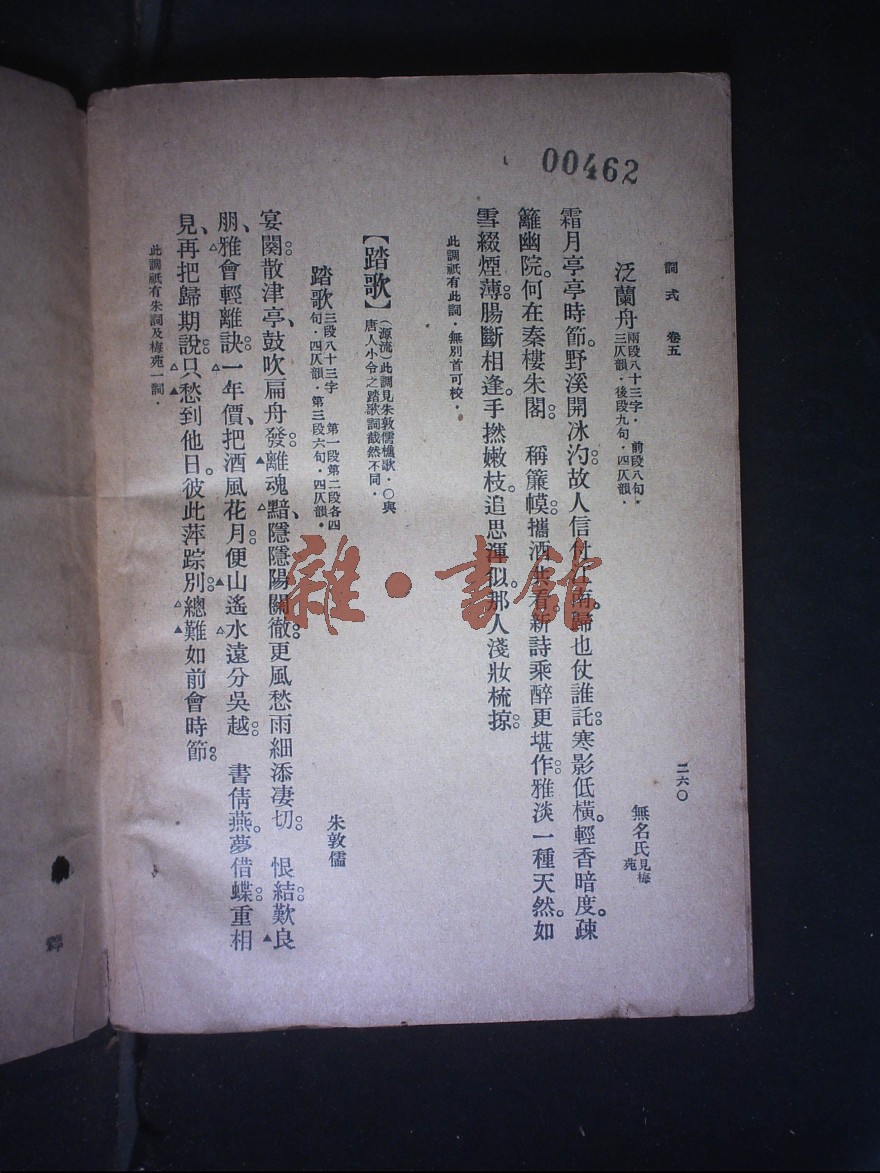 00462
詞式 卷五 二六〇
泛蘭舟 兩段八十三字・前段八句・三仄韻・後段九句・四仄韻・ 無名氏 見梅苑
霜月亭亭時節。野溪開冰汋。故人信付江南。歸也仗誰託。寒影低橫。輕香暗度。疎
籬幽院。何在秦樓朱閣。 稱簾幙。攜酒共看。新詩乘醉更堪作。雅淡一種天然。如
雪綴煙薄。腸斷相逢。手撚嫩枝。追思渾似。那人淺妝梳掠。
此調祇有此詞・無別首可校・
【踏歌】（源流）此調見朱敦儒樵歌・〇與唐人小令之踏歌詞截然不同・
踏歌 三段八十三字 第一段第二段各四句・四仄韻・第三段六句・四仄韻・ 朱敦儒
宴闋。散津亭、鼓吹扁舟發。離魂黯、隱隱陽關徹。更風愁雨細添凄切。 恨結。歎良
朋、雅會輕離訣。一年價、把酒風花月。便山遙水遠分吳越。 書倩燕。夢借蝶。重相
見、再把歸期說。只愁到他日。彼此萍踪別。總難如前會時節。
此調祇有朱詞及梅苑一詞・
雜・書館